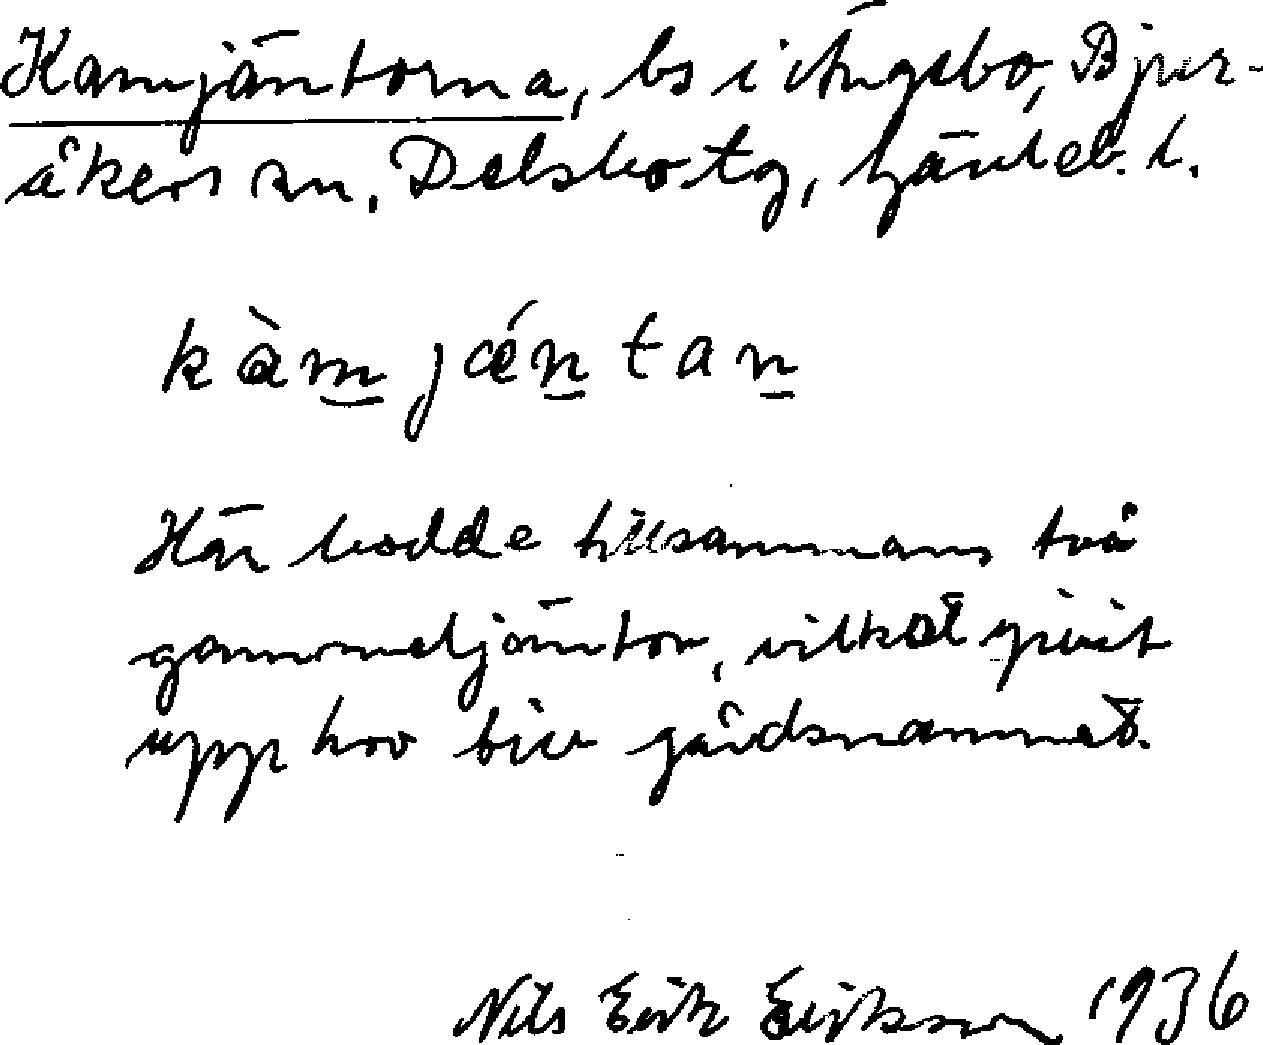 Kamjäntorna, bs i Ängsbo, Bjur-
åkers sn, Delsbo tg, Gävleb. l.
kàm jǽn tan
Här bodde tillsammans två
gammeljäntor, vilket givit
upphov till gårdsnamnet.
Nils Erik Eriksson 1936